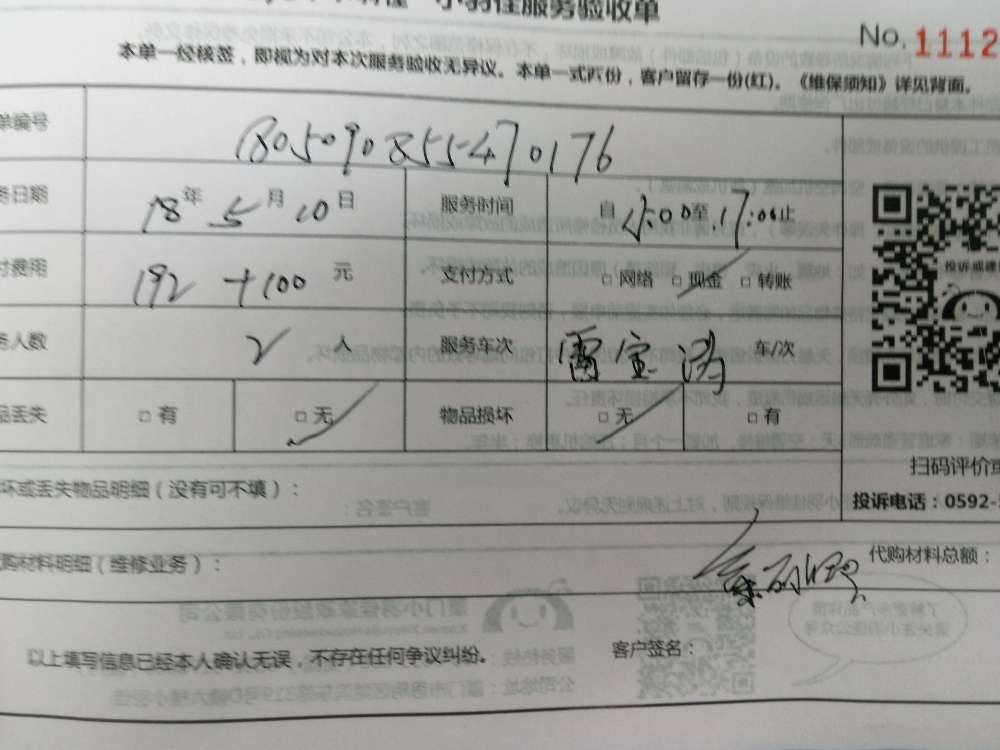 小羽佳服务验收单
No. 1112
本单一经核签，即视为对本次服务验收无异议。本单一式两份，客户留存一份(红)。《维保须知》详见背面。
单编号 1805090855470176
务日期 18年 5月 10日 服务时间 自 :00至17:00止
付费用 192 +100 元 支付方式 □ 网络 □ 现金 □ 转账
务人数 2 人 服务车次 雷宝 车/次
品丢失 □ 有 □ 无 物品损坏 □ 无 □ 有
投诉或建
扫码评价或
坏或丢失物品明细（没有可不填）：
投诉电话：0592-
购材料明细（维修业务）：
代购材料总额：
以上填写信息已经本人确认无误，不存在任何争议纠纷。
客户签名：